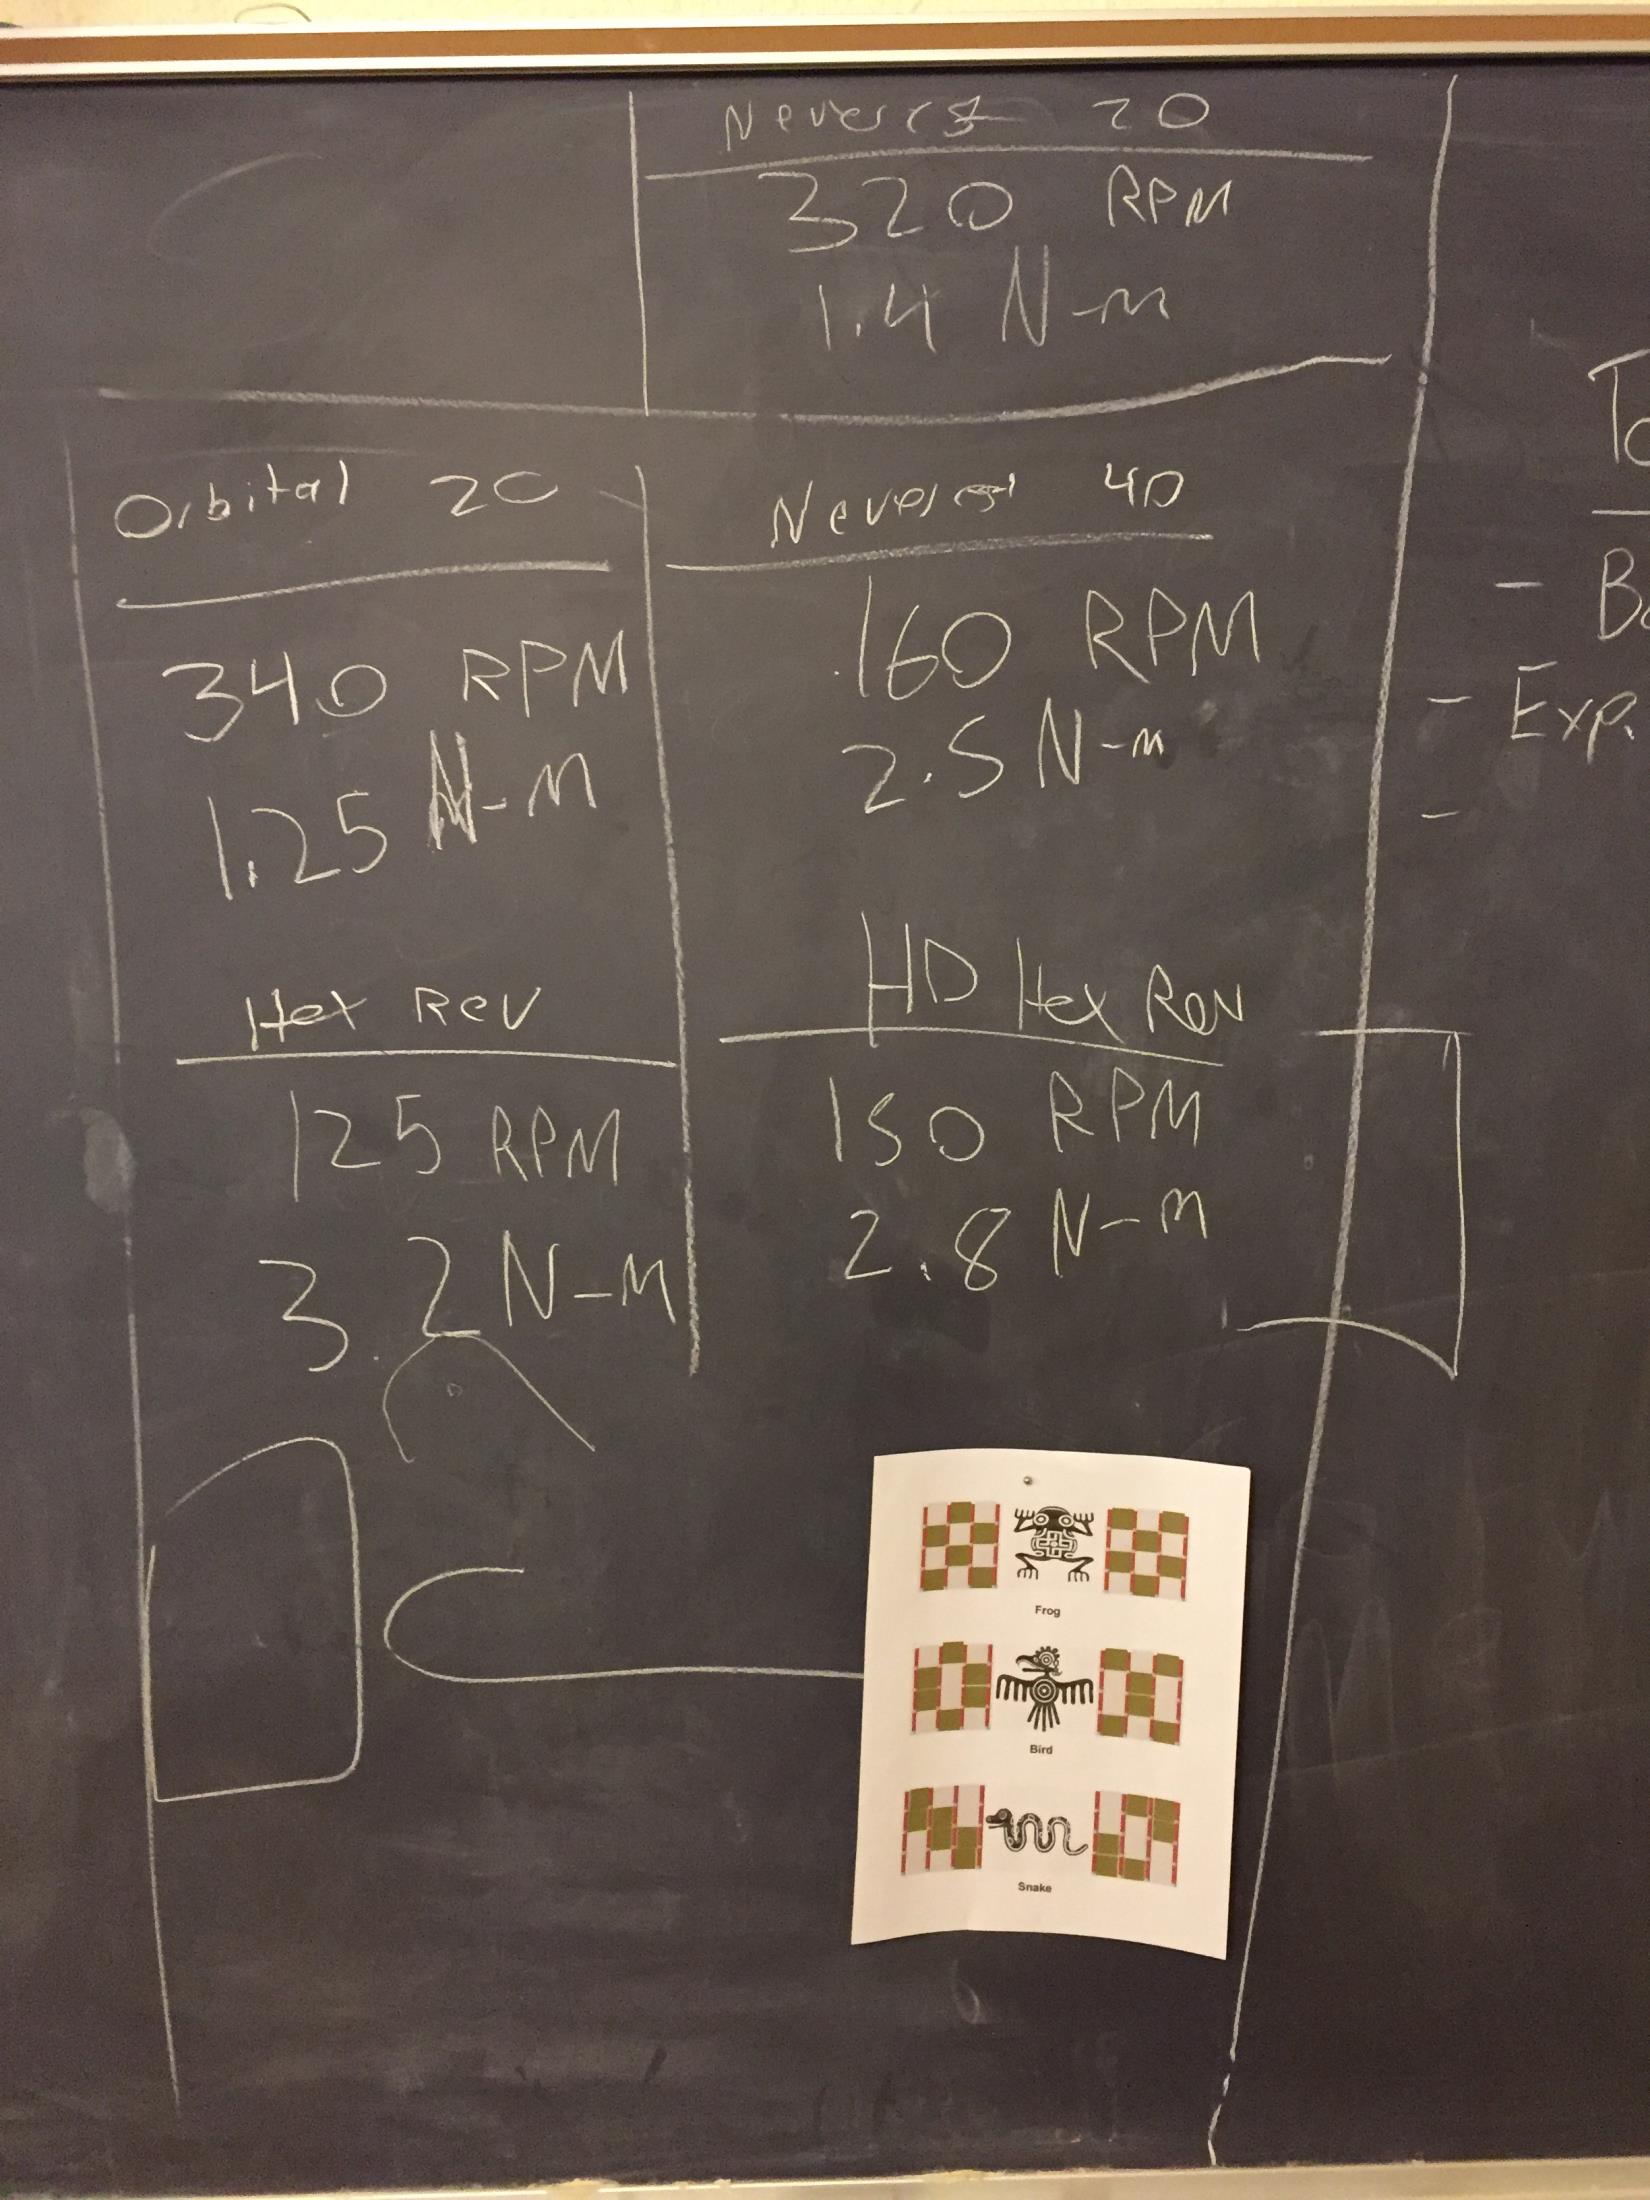 Neverest 20
320 RPM
1.4 N-m
Orbital 20
340 RPM
1.25 N-m
Neverest 40
160 RPM
2.5 N-m
Hex Rev
125 RPM
3.2 N-m
HD Hex Rev
150 RPM
2.8 N-m
To
- Ba
- Exp.
-
Frog
Bird
Snake